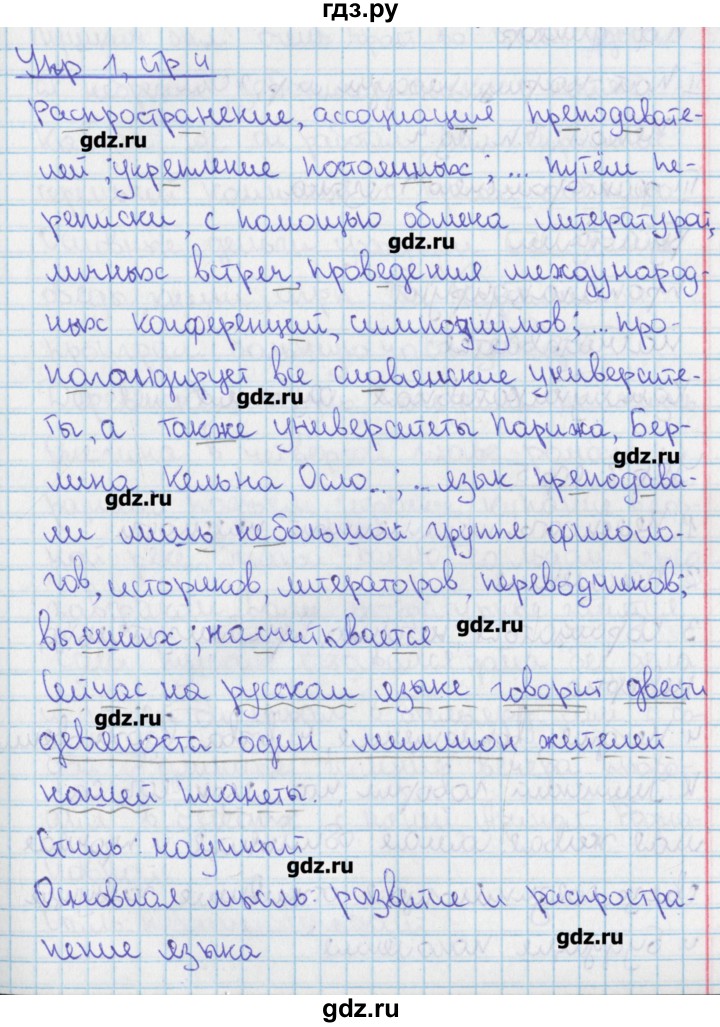 гдз.ру
Упр 1, стр 4
Распространение, ассоциация преподавате-
gdz.ru
лей; укрепление постоянных; ... путём пе-
реписки, с помощью обмена литературой,
gdz.ru
личных встреч, проведения международ-
ных конференций, симпозиумов; ... про-
пагандирует все славянские университе-
gdz.ru
ты, а также университеты Парижа, Бер-
gdz.ru
лина, Кельна, Осло...; ... язык преподава-
gdz.ru
ли лишь небольшой группе филоло-
гов, историков, литераторов, переводчиков;
высших; насчитывается
gdz.ru
Сейчас на русском языке говорит двести
gdz.ru
девяноста один миллион жителей
нашей планеты.
Стиль: научный
gdz.ru
Основная мысль: развитие и распростра-
нение языка
gdz.ru
gdz.ru